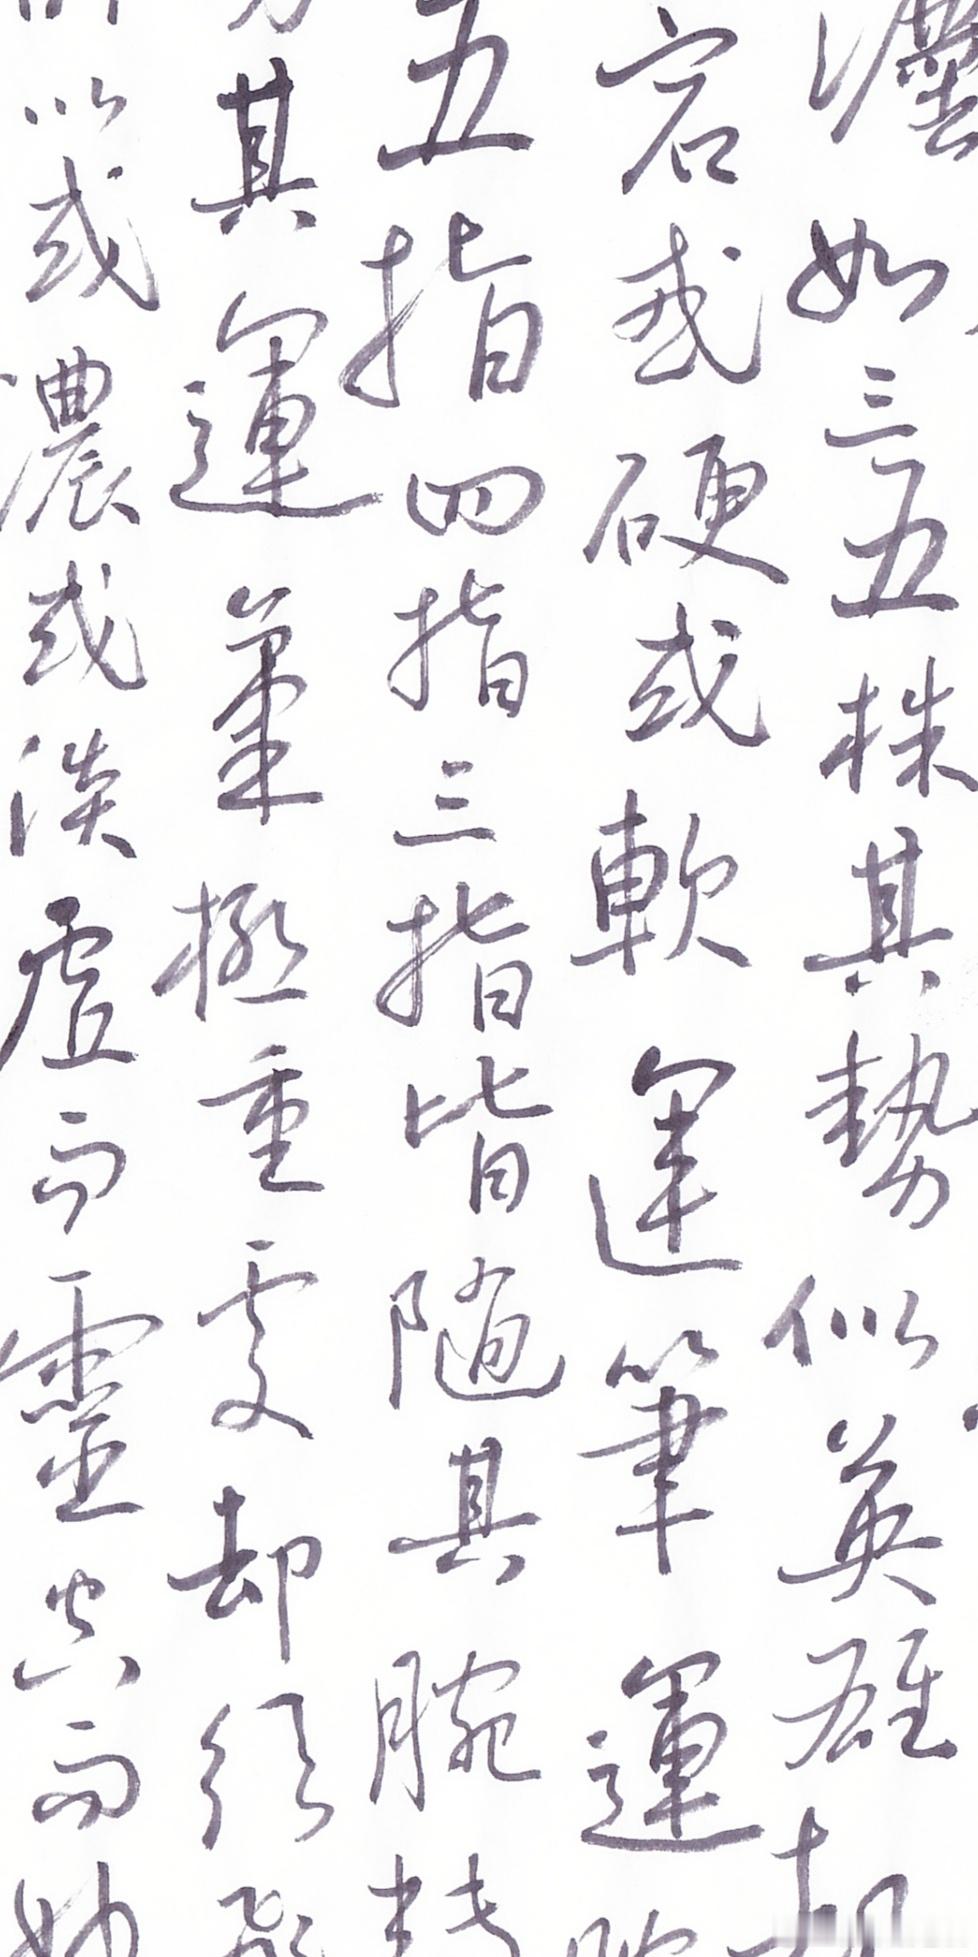 如三五株其勢似英雄起
宕或硬或軟運筆運腕
五指四指三指皆隨其腕轉
其運氣極重處却須飛
以或濃或淡虛而靈空而妙